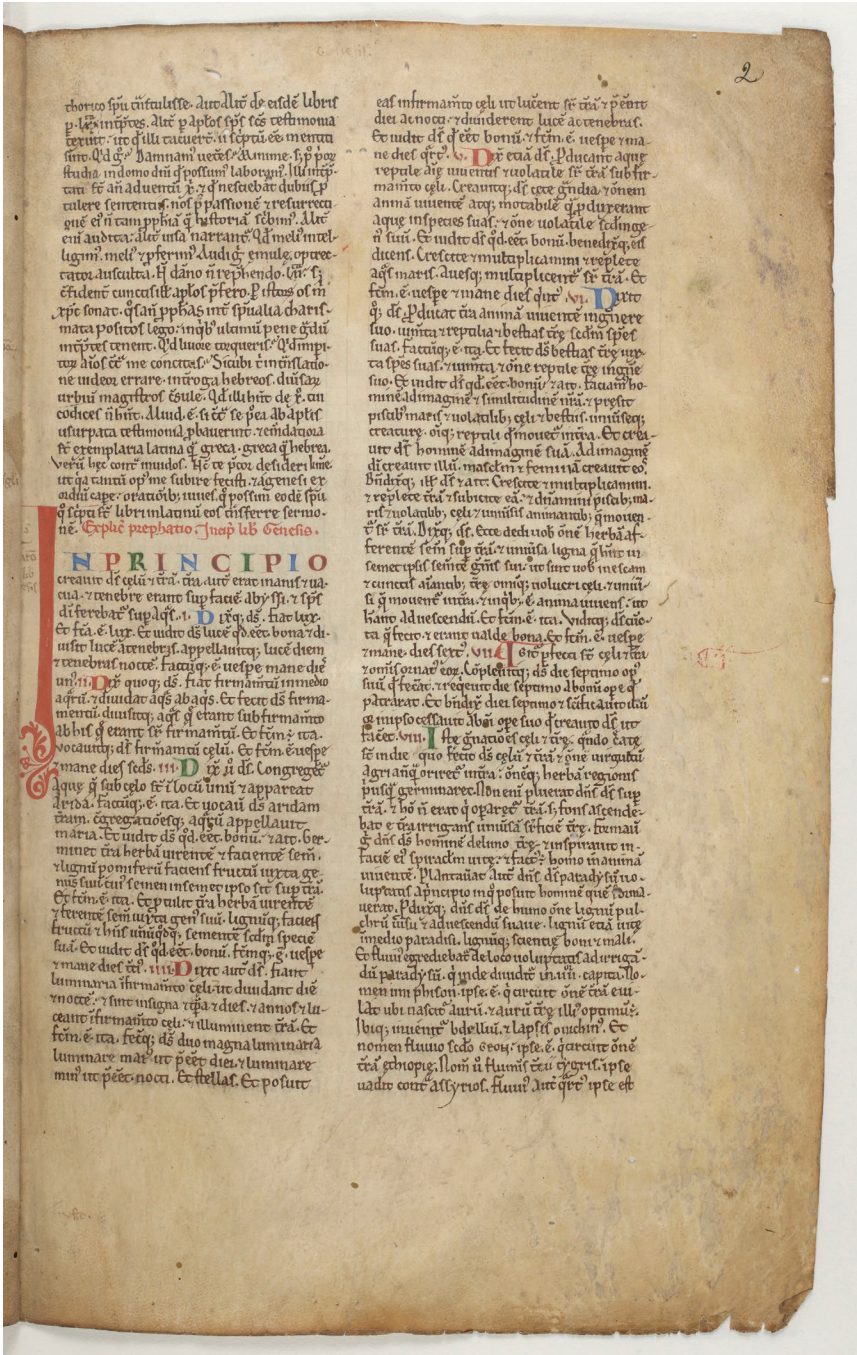 2
thorico spũ cũstulisse. Aut Alit̃ de eisdẽ libris
p. lxx. int̃p̃tes. Alit̃ p ap̃los sp̃s sc̃s testimonia
texuit. ut q̃ illi tacuer̃t. ii sc̃ptũ eẽ. mentiti
sint. Qd g̊. Damnam̃ veteˢ. Minime. s; p̊ prioꝝ
studia in domo dñi q̃ possum̃ laboram̃. Illi int̃p̃-
tati st̃ an̄ adventũ x̃. & q̃ nesciebãt dubiis p̃
tulere sententiis. nos p̊ passionẽ & resurrecti-
onẽ ei᷒ ñ tam ꝓph̃iã q̃ historiã sc̃bim̃. Alit̃
eni audita. alit̃ uisa narrant̃. Qd meli᷒ intel-
ligim̃. meli᷒ & ꝓferim̃. Audi g̊ emule. optrec-
tator ausculta. Ñ dãno ñ rep̃hendo. lxx. s;
c̃fident̃ cunctis ill̃. aplos p̃fero. P istoꝝ os m̃
xp̃c sonat. q̃s an̄ ꝓph̃as int̃ sp̃ualia charis-
mata positos lego. in q̃b᷒ ultimũ pene g̃dũ
int̃p̃tes tenent. Qd liuore torqueris. Qd imꝑi-
toꝝ aĩos c̃t̃ me concitas. Sicubi t̃ in t̃slatio-
ne uideor errare. int̃roga hebreos. diũsaꝝ
urbiũ magistros c̃sule. Qd illi hñt de x̃. tui
codices ñ hñt. Aliud. ẽ. si c̃t̃ se p̊ea ab aplis
usurpata testimonia ꝓbauerint. & em̃datiora
st̃ exemplaria latina q̃ greca. greca q̃ hebrea.
Verũ hęc cont̃ inuidos. Ñc te p̃cor desideri kĩme.
ut q̃a tantũ op᷒ me subire fecisti. & a genesi ex-
ordiũ cape᷒. orationib᷒ iuues. q̊ possim eodẽ spũ
q̊ sc̃pti st̃ libri in latinũ eos t̃nsferre sermo-
nẽ. Explic̃ prephatio. Incip̃ lib̃ Genesis.
IN PRINCIPIO
creauit ds̃ cęlũ & t̃rã. t̃ra aut̃ erat inanis & ua-
cua. & tenebre erant sup̃ faciẽ abyssi. & sp̃s
dĩ ferebat᷒ sup̃ aq̃s. .i. Dixq; ds̃. fiat lux.
Et fc̃a. ẽ. lux. Et uidit ds̃ lucẽ qd. eẽt. bona & di-
uisit lucẽ a tenebris. appellauitq; lucẽ diem
& tenebras noctẽ. factũq;. ẽ. uespe & mane dies̃
un᷒. .ii. Dix̃ quoq; ds̃. fiat firmam̃tũ in medio
aq̃rũ. & diuidat aq̃s ab aq̃s. Et fecit ds̃ firma-
mentũ. diuisitq; aq̃s q̃ erant sub firmam̃to
ab his q̃ erant sr̃ firmam̃tũ. Et fc̃m. ẽ. ita.
vocauitq; ds̃ firmam̃tũ cęlũ. Et fc̃m. ẽ. uespe
& mane dies scds̃. .iii. Dix̃ ũ ds̃. Congregẽt᷒
aquę q̃ sub cęlo st̃ ĩ locũ unũ & appareat
arida. factũq;. ẽ. ita. Et uocauit ds̃ aridam
t̃ram. c̃gregationesq; aq̃rũ appellauit
maria. Et uidit ds̃ qd. eẽt. bonũ. & ait. Ger-
minet t̃ra herbã uirentẽ & facientẽ sem̃.
& lignũ pomiferũ faciens fructũ iuxta ge-
nus suũ. cui᷒ semen in semet ipso sit sup̃ t̃rã.
Et fc̃m. ẽ. ita. Et ꝓtulit t̃ra herbã uirentẽ
& ferentẽ sem̃ iuxta gen᷒ suũ. lignũq; faciens
fructũ & hñs unũqdq; sementẽ sc̃dm speciẽ
suã. Et uidit ds̃ qd. eẽt. bonũ. fc̃mq;. ẽ. uespe
& mane dies t̃ci᷒. .iiii. Dixit aut̃ ds̃. fiant
luminaria ĩ firmam̃to cęli. ut diuidant diẽ
& noctẽ. & sint in signa & t̃pra & dies. & annos & lu-
ceant ĩ firmam̃to cęli. & illuminent t̃rã. Et
fc̃m. ẽ. ita. fec̃q; ds̃ duo magna luminaria
luminare mai᷒ ut p̃eẽt diei. & luminare
min᷒ ut p̃eẽt nocti. Et stellas. Et posuit
eas in firmam̃to cęli ut lucẽnt sr̃ t̃rã & p̃eẽnt
diei ac nocti. & diuiderent lucẽ ac tenebras.
Et uidit ds̃ q̃ eẽt bonũ. & fc̃m. ẽ. uespe & ma-
ne dies q̃rt᷒. .v. Dix̃ etiã ds̃. Ꝓducant aquę
reptile aĩę uiuentis & uolatile sr̃ t̃rã sub fir-
mam̃to cęli. Creauitq; ds̃ cętę g̃ndia & om̃nem
animã uiuentẽ atq; motabilẽ q̃ ꝓduxerant
aquę in species suas. & om̃ne uolatile sc̃dm ge-
ñ suũ. Et uidit ds̃ qd. eẽt. bonũ. benedix̃q; eis
dicens. Crescite & multiplicamini & replete
aq̃s maris. Auesq; multiplicent᷒ sr̃ t̃rã. Et
fc̃m. ẽ. uespe & mane dies q̃nt᷒. .vi. Dixit
q; ds̃. ꝓducat t̃ra animã uiuentẽ in genere
suo. iumta & reptilia & bestias t̃rę sc̃dm sp̃es
suas. factũq;. ẽ. ita. Et fecit ds̃ bestias t̃rę iux-
ta sp̃es suas. & iumta & om̃ne reptile t̃rę in gñe
suo. Et uidit ds̃ qd. eẽt. bonũ & ait. faciam᷒ ho-
minẽ ad imaginẽ & similitudinẽ nr̃ã. & presit
piscib᷒ maris & uolatilib᷒ cęli & bestiis. uniũseq;
creature. om̃iq; reptili q̃ mouet᷒ in t̃ra. Et crea-
uit ds̃ hominẽ ad imaginẽ suã. Ad imaginẽ
dĩ creauit illũ. masclm & feminã creauit eos.
Bñdixitq; ill᷒ ds̃ & ait. Crescite & multiplicamini.
& replete t̃rã & subicite eã. & dñamini piscib᷒ ma-
ris & uolatilib᷒ cęli & uniũsis animantib᷒. q̃ mouen-
t᷒ sr̃ t̃rã. Dixq; ds̃. Ecce dedi uob̃ om̃nẽ herbã af-
ferentẽ sem̃ sup̃ t̃rã. & uniũsa ligna q̃ hñt in
semet ipsis sem̃tẽ gñis sui. ut sint uob̃ in escam
& cunctis aĩantib᷒ t̃rę. omĩq; uolucri cęli. & uniũ-
sis q̃ mouent᷒ in t̃ra. & in q̃b᷒. ẽ. anima uiuens. ut
hãnt ad uescendũ. Et fc̃m. ẽ. ita. Viditq; ds̃ cũc-
ta q̃ fecit. & erant ualde bona. Et fc̃m. ẽ. uespe
& mane. dies sext᷒. .vii. Igit̃ ꝑfecti st̃ cęli & t̃ra
& omĩs ornat᷒ eoꝝ. Cõpleuitq; ds̃ die septimo op᷒
suũ q̃ fec̃at. & req̃euit die septimo ab om̃i ope q̃
patrarat. Et bñdix̃ diei septimo & sc̃ificauit illũ.
q̃a in ipso cessauit ab om̃i ope suo q̃ creauit ds̃ ut
facet̃. .viii. Iste gñatiões cęli & t̃rę. q̃ndo c̃ate
st̃ in die quo fecit ds̃ cęlũ & t̃rã & om̃ne uirgultũ
agri an̄q̃ oriret̃ in t̃ra. om̃nẽq; herbã regionis
pusq̃ germinaret. Non eni pluerat dñs ds̃ sup̃
t̃rã. & hõ ñ erat q̃ oꝑaret᷒ t̃rã. s; fons ascende-
bat e t̃ra irrigans uniũsã sr̃ficiẽ t̃rę. formauit
g̊ dñs ds̃ hominẽ de limo t̃rę. & inspirauit in
faciẽ ei᷒ spiraclm uitę. & fact᷒. ẽ. homo in animã
uiuentẽ. Plantauat aut̃ dñs ds̃ paradysũ uo-
luptatis a principio in q̊ posuit hominẽ quẽ forma-
uerat. Ꝓduxq; dñs ds̃ de humo om̃ne lignũ pul-
chrũ uisu & ad uescendũ suaue. lignũ etiã uitę
in medio paradisi. lignũq; scientię boni & mali.
Et fluui᷒ egrediebat᷒ de loco uoluptatis ad irrigã-
dũ paradysũ. q̃ inde diuidit᷒ in. iiii. capita. No-
men uni phison. ipse. ẽ. q̃ circuit om̃nẽ t̃rã eui-
lat ubi nascit᷒ aurũ. & aurũ t̃rę illi᷒ optimũ. ẽ.
Ibiq; inuenit᷒ bdelliũ. & lapis onichin᷒. Et
nomen fluuio sc̃do geon. ipse. ẽ. q̃ circuit om̃nẽ
t̃rã ethiopię. Nom̃ ũ fluminis t̃cii tygris. ipse
uadit cont̃ assyrios. fluui᷒ aut̃ q̃rt᷒ ipse est